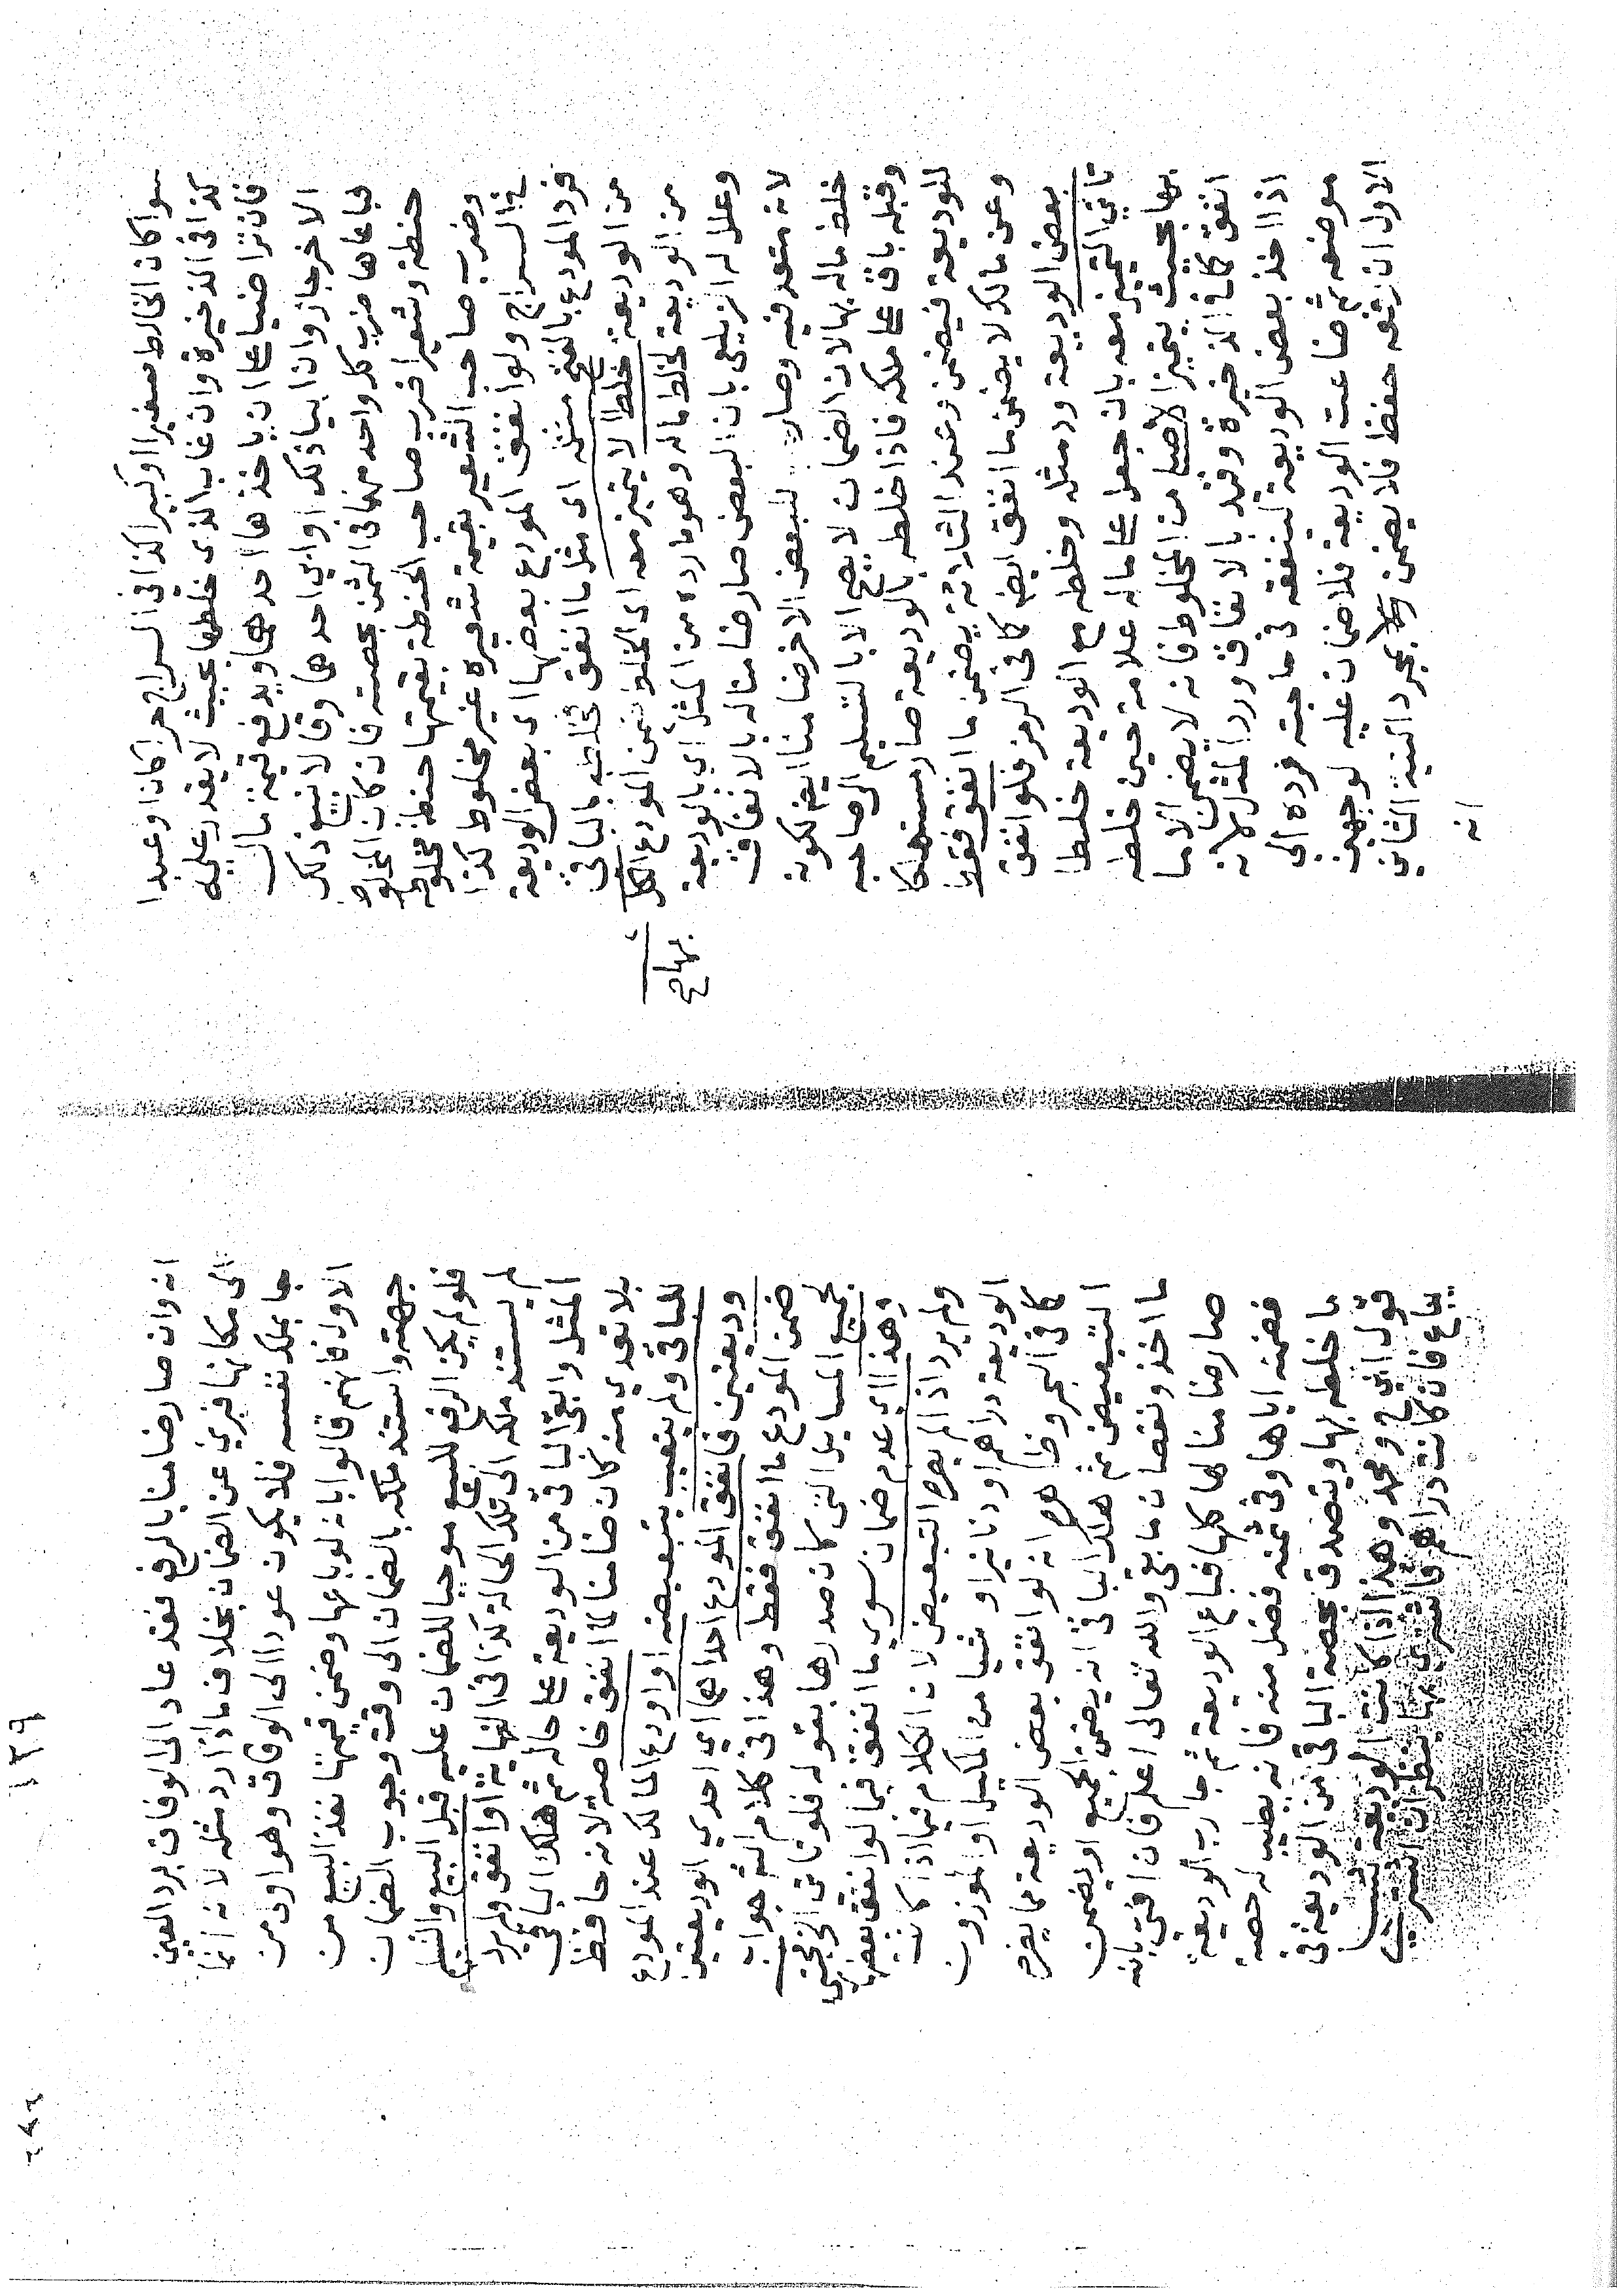 سواكان الخالط صغيرا او كبيرا كذا في السراج حرا كان او عبدا
كذا فى الذخيرة وان غاب الذى خلطها بحيث لا يقدر عليه
فان تراضيا على ان ياخذها احدهما ويدفع قيمة مال
الاخر جاز وان ابيا ذلك او ابي احدهما وقالا نبيع ذلك
فباعاها ضرب كل واحد منهما فى الثمن بحصته فان كان المخلوط
حنطة وشعيرا ضرب صاحب الحنطة بقيمتها حنطة مخلوطة
وضرب صاحب الشعير بقيمة شعيره غير مخلوط كذا
في السراج ولو انفق المودع بعضها اى بعض الوديعة
فرد المودع بالفتح مثله اى مثل ما انفق فخلطه بالباقي
من الوديعة خلطا لا يتميز معه اى المخلوط ضمن المودع الكل
من الوديعة لخلط ماله وهو ما رده من المثل اي بالوديعة
بها ح
وعلل له الزيلعى بان البعض صار ضامنا له بالانفاق
لانه متعد فيه وصار للبعض الاخر ضامنا ايضا لكونه
خلط ماله بها لان الضمان لا يصح الا بالتسليم الى صاحبه
وقبله باق على ملكه فاذا خلطه بالوديعة صار مستهلكا
للوديعة فيضمن وعند الثلاثة يضمن ما انفق فقط
وعن مالك لا يضمن ما انفق ايضا كما فى الرمز فلو انفق
بعض الوديعة ورد مثله وخلطه مع الوديعة خلطا
تاتي التمييز معه بان جعل على ماله علامة حين خلطه
بها بحيث يتميز الاصل من المخلوط فانه لا يضمن الا ما
انفق كما في الذخيرة وقيد بالانفاق ورد المثل لانه
اذا اخذ بعض الوديعة لينفقه فى حاجته فرده الى
موضعه ثم ضاعت الوديعة فلا ضمان عليه لوجهين
الاول ان رفعه حفظ فلا يضمن بمجرد النية الثاني
انه
١٣٩
انه وان صار ضامنا بالرفع فقد عاد الى الوفاق برد العين
الى مكانها فبرئ عن الضمان بخلاف ما اذا رد مثله لانه انما
جا بملك نفسه فلا يكون عودا الى الوفاق وهو اولى من
الاول فانهم قالوا بانه لو باعها وضمن قيمتها نفذ البيع من
جهته واستند ملكه بالضمان الى وقت وجوب الضمان
فلو لم يكن الرفع للبيع موجبا للضمان عليه قبل البيع والتسليم
لم يستند ملكه الى تلك الحالة كذا فى النهاية او انفق ولم يرد
المثل وابقى الباقى من الوديعة على حاله ثم هلك الباقى
بلا تعدي منه كان ضامنا لما انفق خاصة لانه حافظ
للباقى ولم يتعيب بتبعيضه او اودع المالك عند المودع
وديعتين فانفق المودع احداهما اي احدي الوديعتين
ضمن المودع ما انفق فقط وهذا فى كلام المتن جواب
بجميع المسايل التى كان صدرها بقوله فلو تاتى الخ فيجزى
وهذا اي عدم ضمان سوي ما انفق فيما لو انفق بعضها
ولم يرد اذا لم يضره التبعيض لان الكلام فيما اذا كانت
الوديعة دراهم او دنانير او شيا من المكيل او الموزون
كما فى البحر وظاهره انه لو انفق بعض الوديعة مما يضره
التبعيض ثم هلك الباقى انه يضمن الجميع او يضمن
ما اخذ ونقصان ما بقى والله تعالى اعلم فان افتى بانه
صار ضامنا لها كلها فباع الوديعة ثم جا رب الوديعة
فضمنه اياها وفى ثمنه فضل منه فانه يطيب له حصة
ما خلطه بها ويتصدق بحصة الباقى من الوديعة فى
قول ابي ح ومحمد وهذا اذا كانت الوديعة شيا
يباع فان كانت دراهم فاشترى بها ينظر ان اشترى